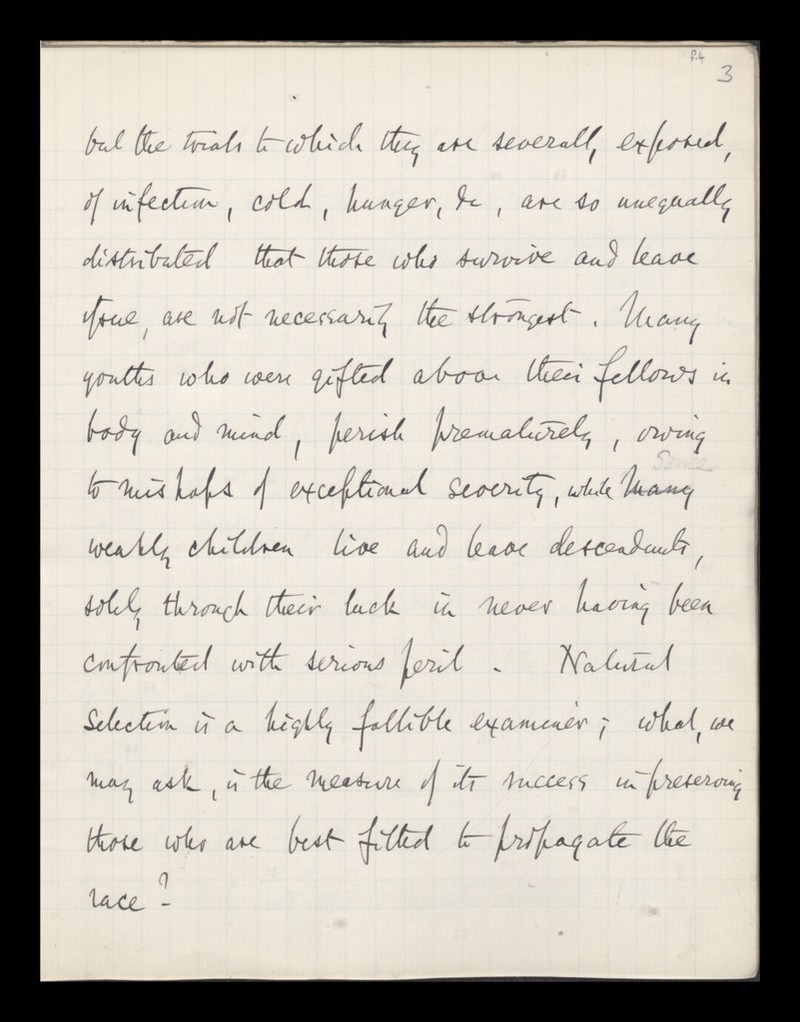 P.4
3
but the trials to which they are severally exposed,
of infection, cold, hunger, &c, are so unequally
distributed that those who survive and leave
issue, are not necessarily the strongest. Many
youths who were gifted above their fellows in
body and mind, perish prematurely, owing
Some
to mishaps of exceptional severity, while Many
weakly children live and leave descendants,
solely through their luck in never having been
confronted with serious peril. Natural
Selection is a highly fallible examiner; what, we
may ask, is the measure of its success in preserving
those who are best fitted to propagate the
race?